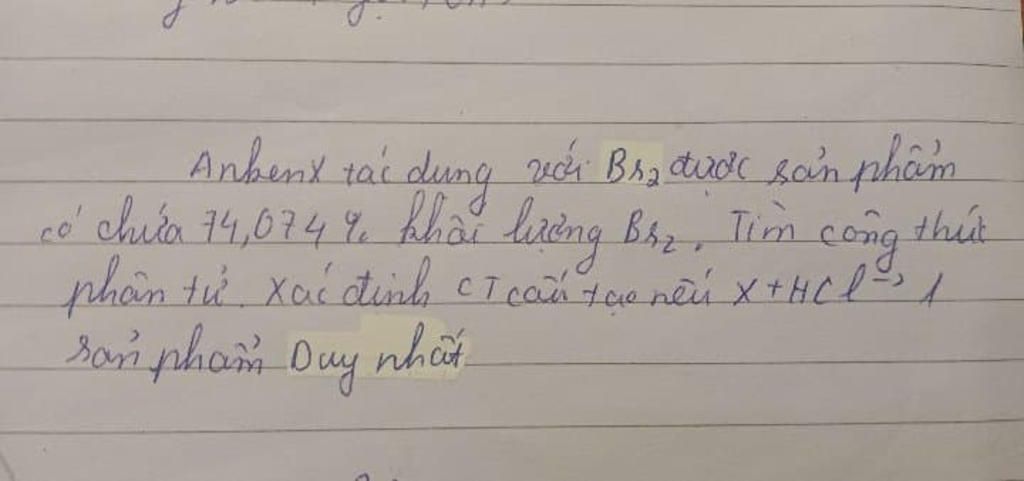 AnkenX tác dụng với Br₂ được sản phẩm
có chứa 74,074% khối lượng Br₂. Tìm công thức
phân tử. Xác định CT cấu tạo nếu X+HCl → 1
sản phẩm Duy nhất